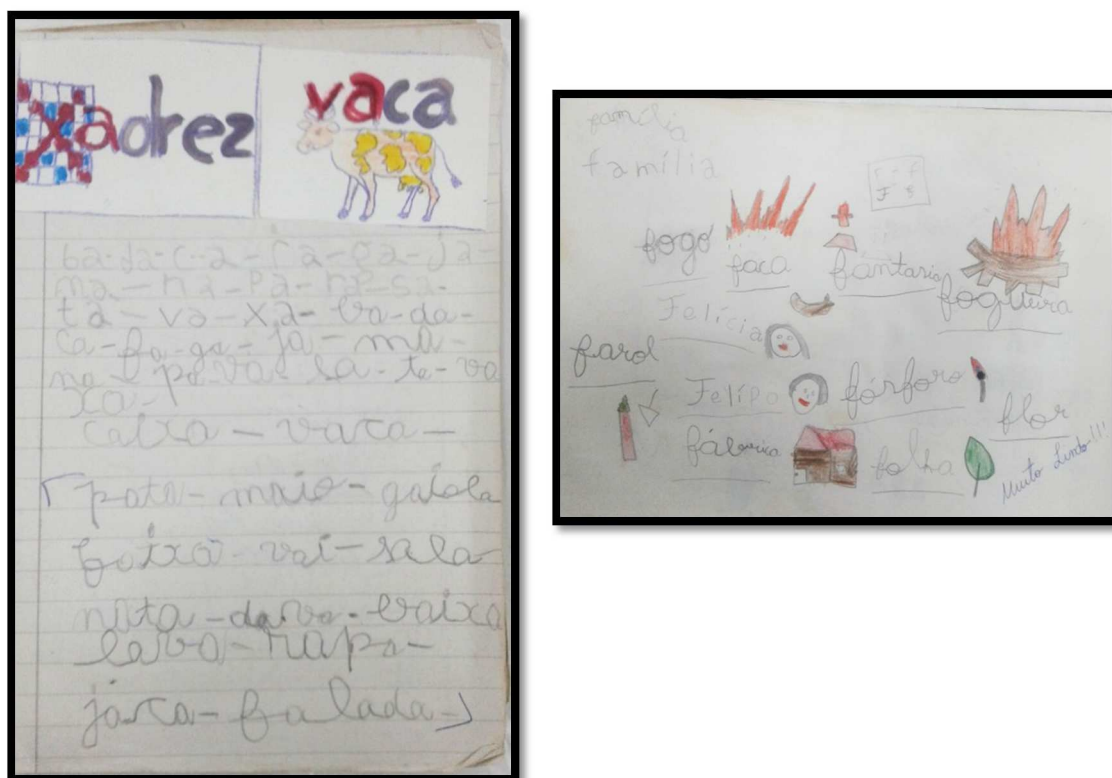 xadrez vaca
ba-da-ca-fa-ga-ja-
ma-na-pa-ra-sa-
ta-va-xa-ba-da-
ca-fa-ga-ja-ma-
na-pa-ra-sa-ta-va
xa-
caixa-vaca-
pata-maio-gaiola
faixa-vai-sala
nata-dava-baixa
lava-rapa-
jaca-falada-
família
família
fogo
faca
fantasia
fogueira
Felícia
farol
Felipe
fósforo
flor
fábrica
folha
Muito Lindo!!!